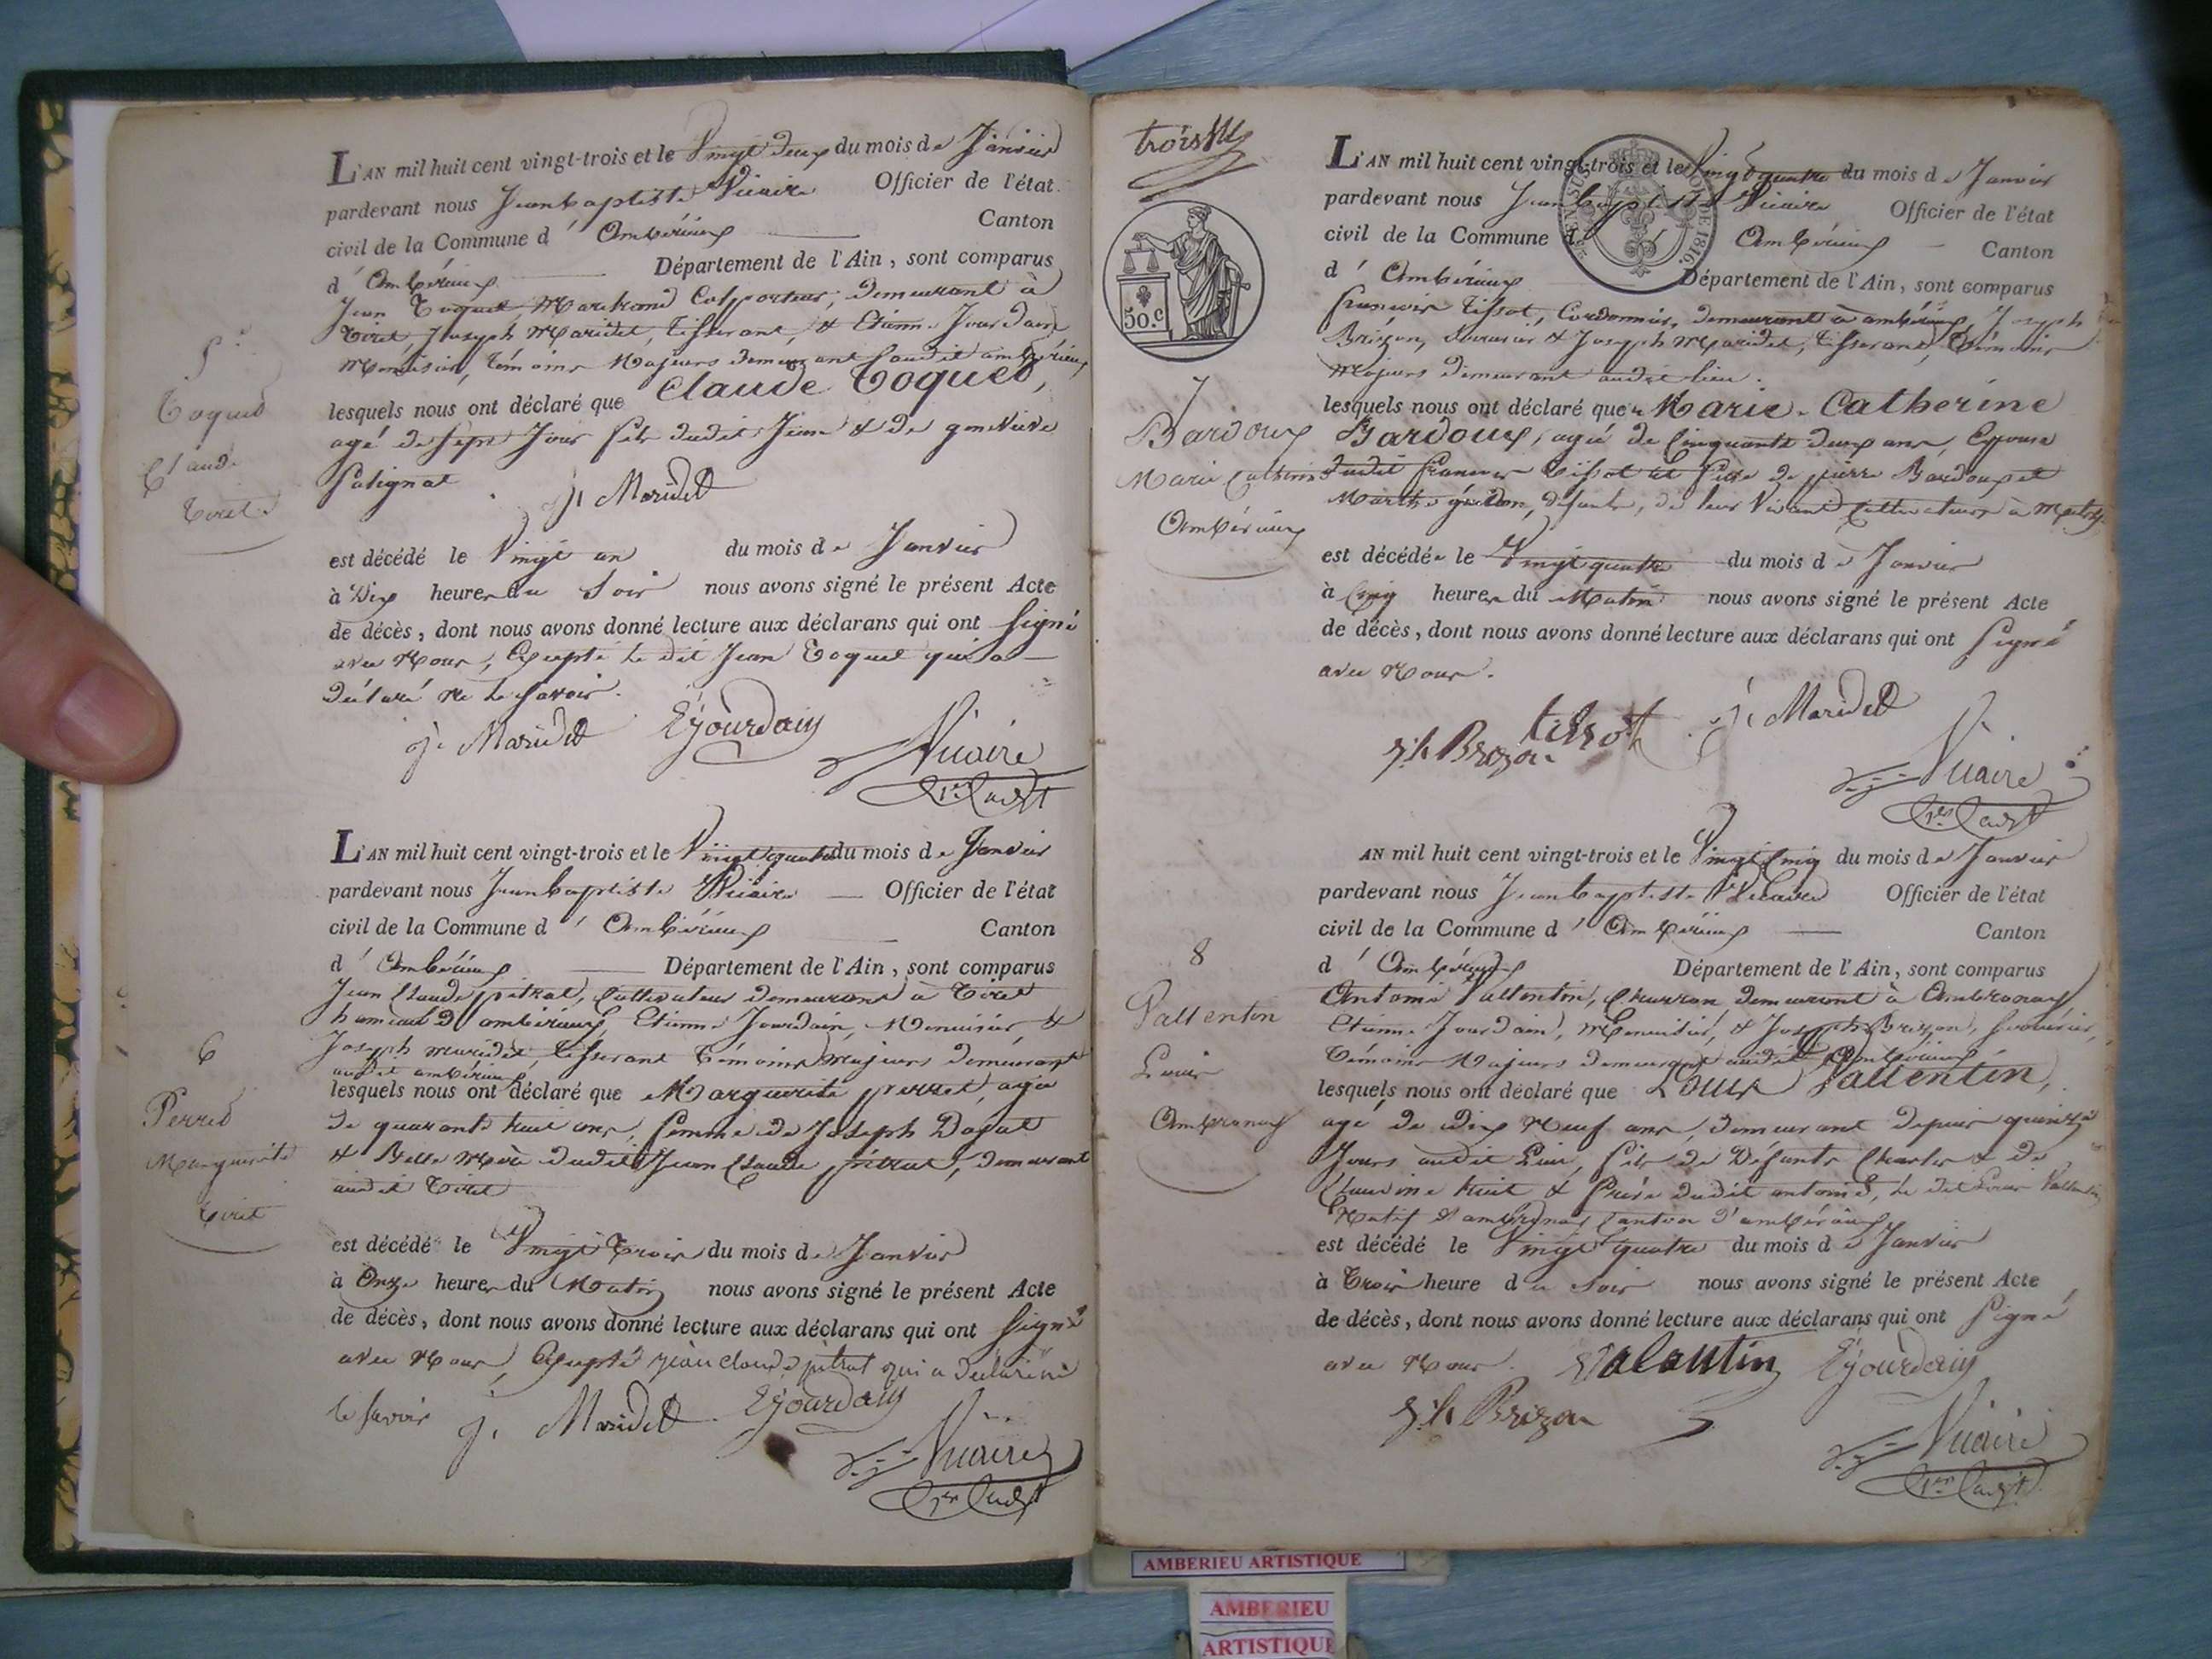 5
Toquet
Claude
Tiret
L'AN mil huit cent vingt-trois et le Vingt deux du mois de Janvier
pardevant nous Jean baptiste Vicaire Officier de l'état
civil de la Commune d' Ambérieux Canton
d' Ambérieux Département de l'Ain, sont comparus
Jean Toquet, Marchand Colporteur, demeurant à
Tiret, Joseph Maridet, tisserant, & Etienne Jourdain
Menuisier, témoins Majeurs demeurant audit ambérieux,
lesquels nous ont déclaré que Claude Toquet,
agé de sept Jours fils dudit Jean & de genevieve
Salignat
J. Maridet
est décédé le Vingt un du mois de Janvier
à Dix heures du Soir nous avons signé le présent Acte
de décès, dont nous avons donné lecture aux déclarans qui ont signé
avec Nous, Excepté le dit Jean Toquet qui a
déclaré ne le savoir.
J. Maridet Ejourdain
Vicaire
6
Perret
Marguerite
tiret
L'AN mil huit cent vingt-trois et le Vingt quatre du mois de Janvier
pardevant nous Jean baptiste Vicaire Officier de l'état
civil de la Commune d' Ambérieux Canton
d' Ambérieux Département de l'Ain, sont comparus
Jean Claude pitrat, Cultivateur demeurant à Tiret
hameau d'ambérieux, Etienne Jourdain, Menuisier &
Joseph maridet, tisserant témoins Majeurs demeurant
audit ambérieux
lesquels nous ont déclaré que Marguerite perret, agée
de quarante huit ans, femme de Joseph
& Belle Mère dudit Jean Claude pitrat, demeurant
audit Tiret
est décédé le Vingt Trois du mois de Janvier
à Onze heures du Matin nous avons signé le présent Acte
de décès, dont nous avons donné lecture aux déclarans qui ont signé
avec Nous, Excepté jean claude pitrat qui a déclaré ne
le savoir J. Maridet Ejourdain
Vicaire
trois
50.c
7
Bardoux
Marie Catherine
Ambérieux
L'AN mil huit cent vingt-trois et le Vingt quatre du mois de Janvier
pardevant nous Jean baptiste Vicaire Officier de l'état
civil de la Commune d' Ambérieux Canton
d' Ambérieux Département de l'Ain, sont comparus
francois tissot, Cordonnier, demeurant à ambérieux, Joseph
Brizon, & Joseph Maridet, tisserant, témoins
Majeurs demeurant audit lieu.
lesquels nous ont déclaré que Marie Catherine
Bardoux, agée de Cinquante deux ans, Epouse
dudit francois tissot et fille de pierre Bardoux et
Marthe défunts, de leur Vivant Cultivateurs à
est décédée le Vingt quatre du mois de Janvier
à Cinq heures du Matin nous avons signé le présent Acte
de décès, dont nous avons donné lecture aux déclarans qui ont signé
avec Nous.
Brizon tissot J. Maridet
Vicaire
8
Vallentin
Louis
Ambronay
AN mil huit cent vingt-trois et le Vingt Cinq du mois de Janvier
pardevant nous Jean baptiste Vicaire Officier de l'état
civil de la Commune d' Ambérieux Canton
d' Ambérieux Département de l'Ain, sont comparus
Antoine Vallentin, Charron demeurant à Ambronay
Etienne Jourdain, Menuisier, & Joseph Brizon,
témoins Majeurs demeurant audit Ambérieux
lesquels nous ont déclaré que Louis Vallentin,
agé de dix Neuf ans, demeurant depuis quinze
Jours audit Lieu, fils de Défunts Charles & de
Claudine & frère dudit antoine, le dit Louis Vallentin
Natif d'ambronay Canton d'ambérieux
est décédé le Vingt quatre du mois de Janvier
à Trois heure du Soir nous avons signé le présent Acte
de décès, dont nous avons donné lecture aux déclarans qui ont signé
avec Nous. Valentin Ejourdain
Brizon
Vicaire
AMBERIEU ARTISTIQUE
AMBERIEU
ARTISTIQUE